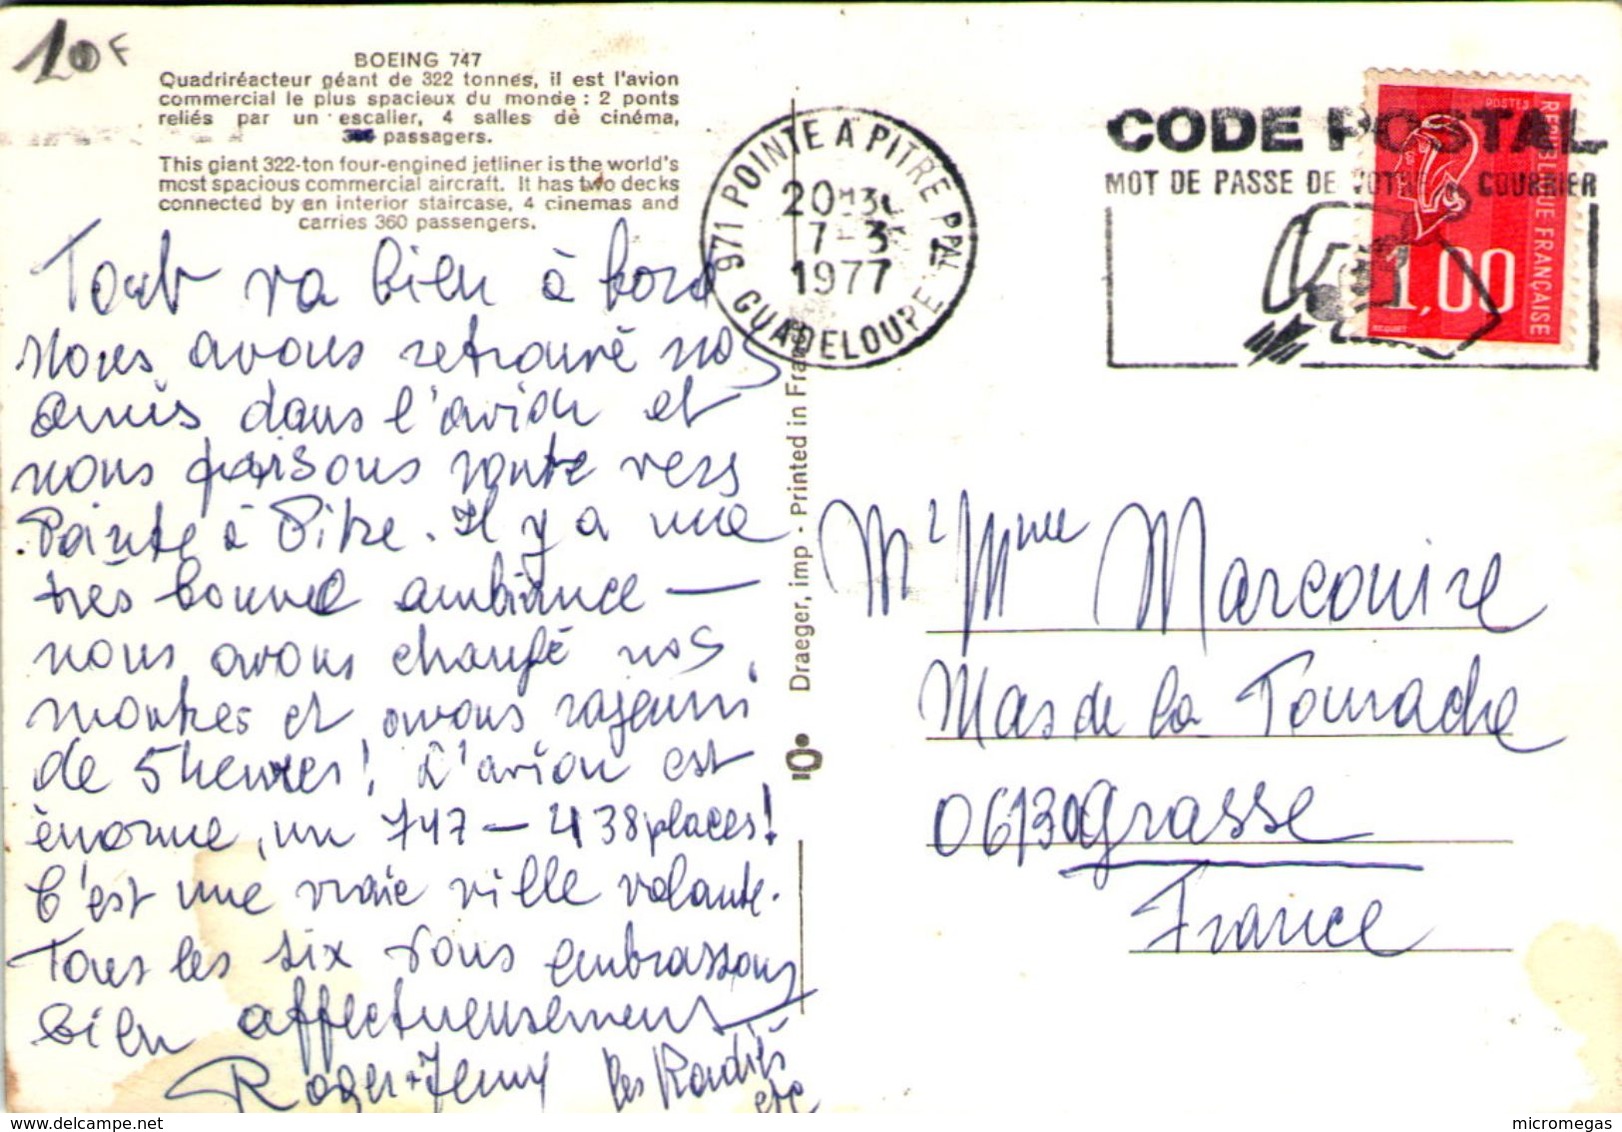 10F
BOEING 747
Quadriréacteur géant de 322 tonnes, il est l'avion
commercial le plus spacieux du monde : 2 ponts
reliés par un escalier, 4 salles de cinéma,
passagers.
This giant 322-ton four-engined jetliner is the world's
most spacious commercial aircraft. It has two decks
connected by an interior staircase, 4 cinemas and
carries 360 passengers.
Tout va bien à bord
nous avons retrouvé nos
amis dans l'avion et
nous faisons route vers
Pointe à Pitre. Il y a une
très bonne ambiance —
nous avons changé nos
montres et avons rajeuni
de 5 heures! L'avion est
énorme, un 747 — 438 places!
C'est une vraie ville volante.
Tous les six vous embrassons
bien affectueusement
Roger + Jenny les Radiés
etc
Draeger, imp - Printed in France
971 POINTE A PITRE PPAL
20H30
7-3
1977
GUADELOUPE
CODE POSTAL
MOT DE PASSE DE VOTRE COURRIER
POSTES
REPUBLIQUE FRANÇAISE
1,00
BEQUET
Mr Mme Marcouire
Mas de la Tourache
06130 Grasse
France
delcampe.net
micromegas